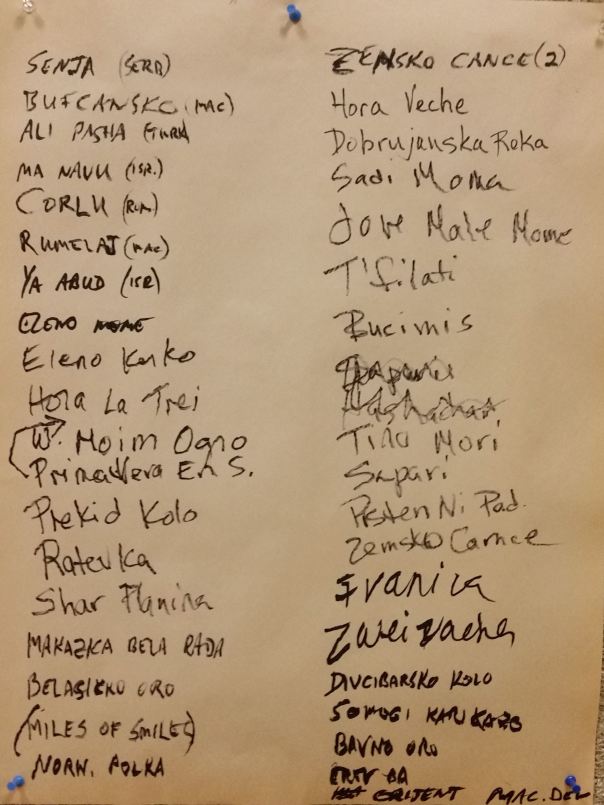 SENJA (SERB)
BUFCANSKO (MAC)
ALI PASHA (TURK
MA NAVU (ISR.)
CORLU (ROM)
RUMELAJ (MAC)
YA ABUD (ISR)
ELENO MOME
Eleno Kerko
Hora La Trei
W. Moim Ogno
PrimaVera En S.
Prekid Kolo
Ratevka
Shar Planina
MAKAZICA BELA RADA
BELASICKO ORO
(MILES OF SMILES)
NORW. POLKA
ZEMSKO CANCE (2)
Hora Veche
Dobrujanska Roka
Sadi Moma
Jove Male Mome
T'filati
Bucimis
Hashachar
Tino Mori
Sapari
Pisten Ni Pad.
Zemsko Camce
Ivanica
Zweizacha
DIVCIBARSKO KOLO
SOMOGI KARIKAZO
BAVNO ORO
MAC. DEL